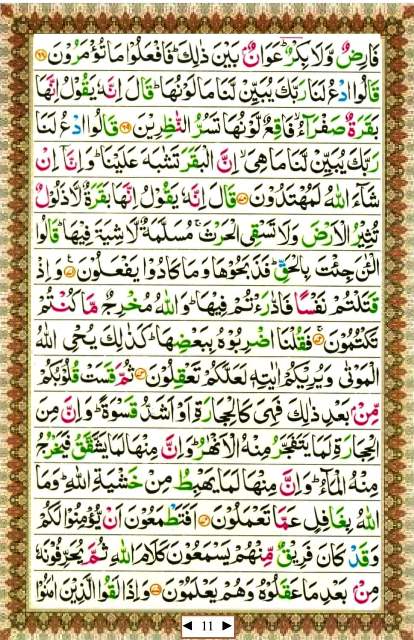 فَارِضٌ وَّلَا بِكْرٌ ؕ عَوَانٌۢ بَيْنَ ذٰلِكَ ؕ فَافْعَلُوْا مَا تُؤْمَرُوْنَ ﴿۶۸﴾
قَالُوا ادْعُ لَنَا رَبَّكَ يُبَيِّنْ لَّنَا مَا لَوْنُهَا ؕ قَالَ اِنَّهٗ يَقُوْلُ اِنَّهَا
بَقَرَةٌ صَفْرَآءُ ۙ فَاقِعٌ لَّوْنُهَا تَسُرُّ النّٰظِرِيْنَ ﴿۶۹﴾ قَالُوا ادْعُ لَنَا
رَبَّكَ يُبَيِّنْ لَّنَا مَا هِيَ ۙ اِنَّ الْبَقَرَ تَشٰبَهَ عَلَيْنَا ؕ وَاِنَّاۤ اِنْ
شَآءَ اللّٰهُ لَمُهْتَدُوْنَ ﴿۷۰﴾ قَالَ اِنَّهٗ يَقُوْلُ اِنَّهَا بَقَرَةٌ لَّا ذَلُوْلٌ
تُثِيْرُ الْاَرْضَ وَلَا تَسْقِى الْحَرْثَ ۚ مُسَلَّمَةٌ لَّا شِيَةَ فِيْهَا ؕ قَالُوا
الْـٰٔنَ جِئْتَ بِالْحَقِّ ؕ فَذَبَحُوْهَا وَمَا كَادُوْا يَفْعَلُوْنَ ﴿۷۱﴾ وَاِذْ
قَتَلْتُمْ نَفْسًا فَادّٰرَءْتُمْ فِيْهَا ؕ وَاللّٰهُ مُخْرِجٌ مَّا كُنْتُمْ
تَكْتُمُوْنَ ﴿۷۲﴾ فَقُلْنَا اضْرِبُوْهُ بِبَعْضِهَا ؕ كَذٰلِكَ يُحْىِ اللّٰهُ
الْمَوْتٰى وَيُرِيْكُمْ اٰيٰتِهٖ لَعَلَّكُمْ تَعْقِلُوْنَ ﴿۷۳﴾ ثُمَّ قَسَتْ قُلُوْبُكُمْ
مِّنْۢ بَعْدِ ذٰلِكَ فَهِىَ كَالْحِجَارَةِ اَوْ اَشَدُّ قَسْوَةً ؕ وَاِنَّ مِنَ
الْحِجَارَةِ لَمَا يَتَفَجَّرُ مِنْهُ الْاَنْهٰرُ ؕ وَاِنَّ مِنْهَا لَمَا يَشَّقَّقُ فَيَخْرُجُ
مِنْهُ الْمَآءُ ؕ وَاِنَّ مِنْهَا لَمَا يَهْبِطُ مِنْ خَشْيَةِ اللّٰهِ ؕ وَمَا
اللّٰهُ بِغَافِلٍ عَمَّا تَعْمَلُوْنَ ﴿۷۴﴾ اَفَتَطْمَعُوْنَ اَنْ يُّؤْمِنُوْا لَكُمْ
وَقَدْ كَانَ فَرِيْقٌ مِّنْهُمْ يَسْمَعُوْنَ كَلَامَ اللّٰهِ ثُمَّ يُحَرِّفُوْنَهٗ
مِنْۢ بَعْدِ مَا عَقَلُوْهُ وَهُمْ يَعْلَمُوْنَ ﴿۷۵﴾ وَاِذَا لَقُوا الَّذِيْنَ اٰمَنُوْا
◄ 11 ►